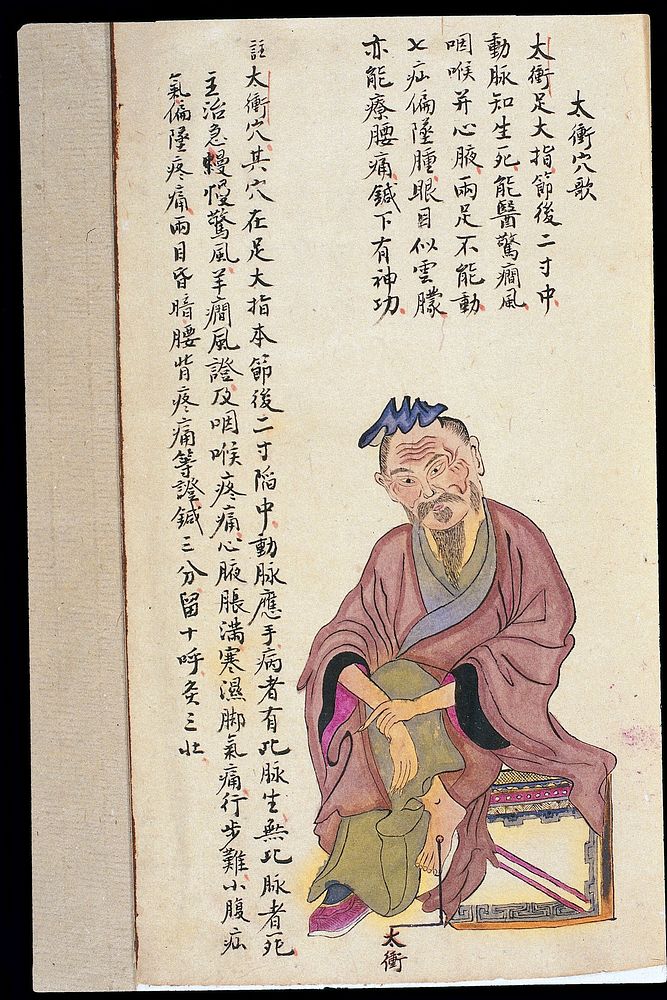 太衝穴歌
太衝足大指節後二寸中
動脉知生死能醫驚癇風
咽喉并心腋兩足不能動
七疝偏墜腫眼目似雲朦
亦能療腰痛鍼下有神功
註太衝穴其穴在足大指本節後二寸陷中動脉應手病者有此脉生無此脉者死
主治急慢慢驚風羊癇風證及咽喉疼痛心腋脹满寒濕脚氣痛行步難小腹疝
氣偏墜疼痛兩目昏暗腰背疼痛等證鍼三分留十呼灸三壯
太衝